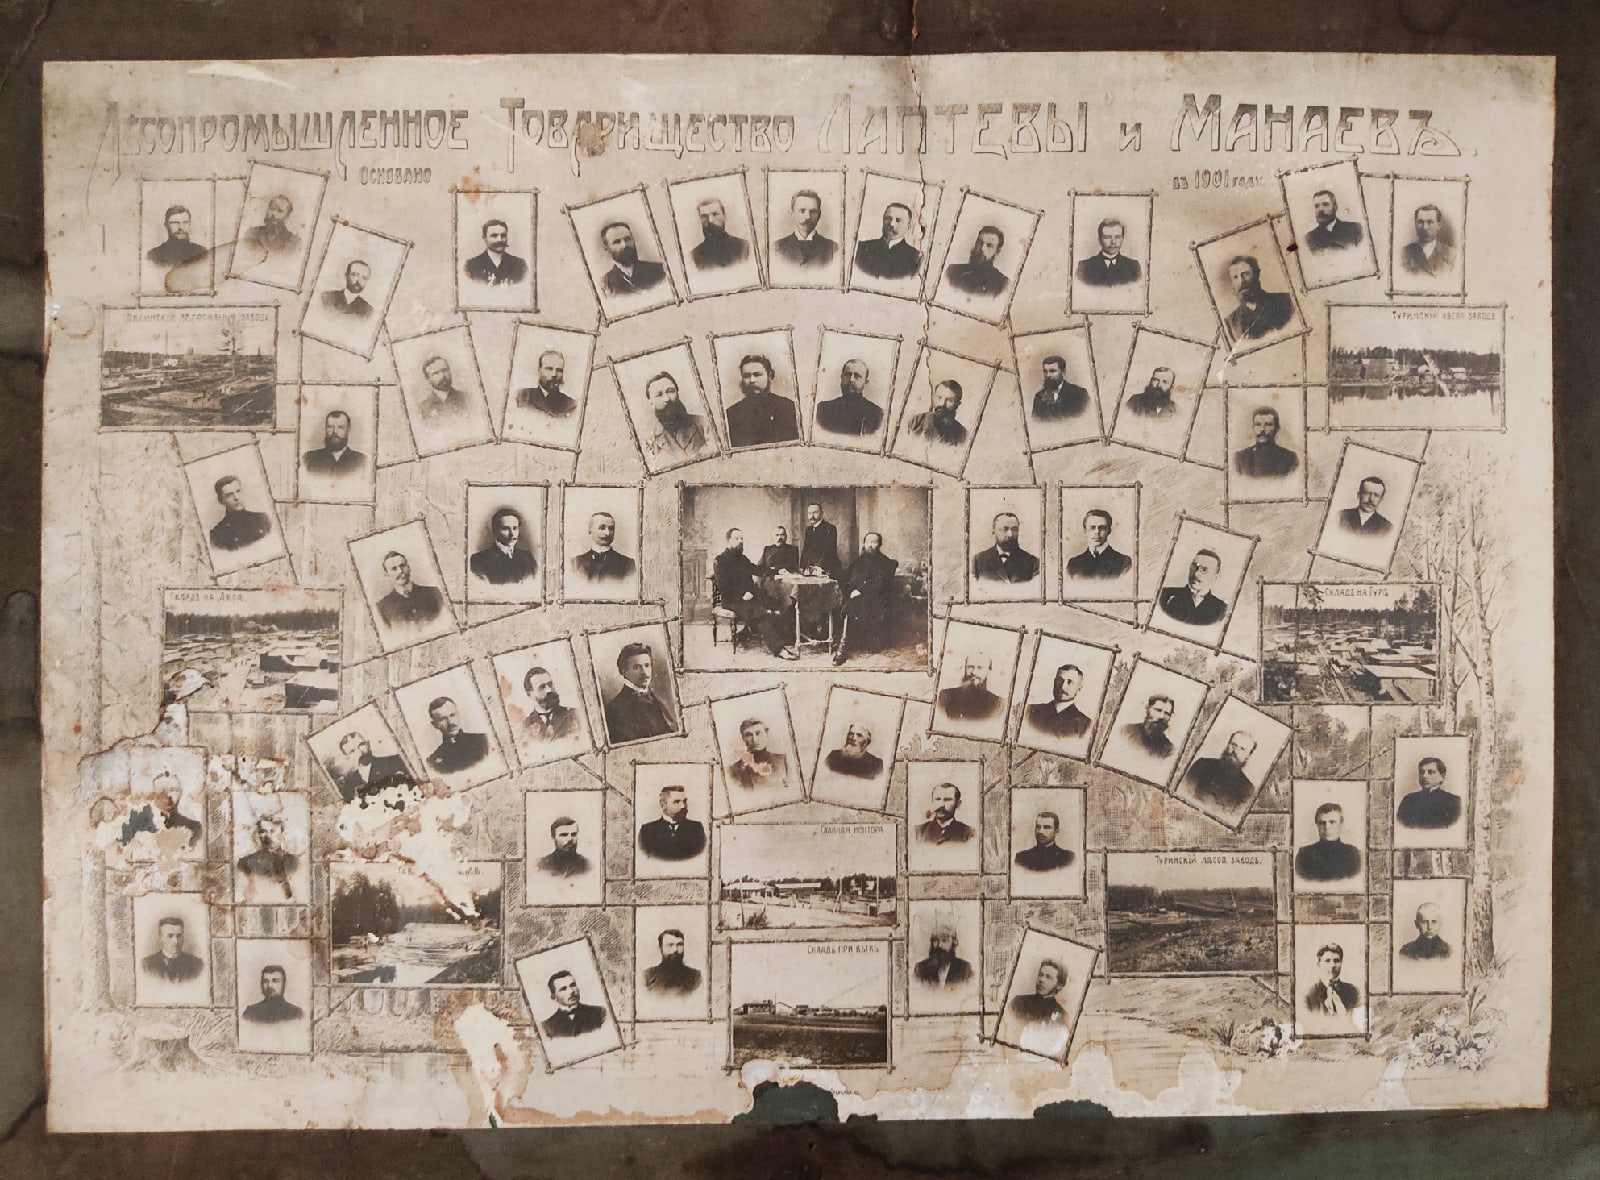 Лѣсопромышленное Товарищество Лаптевы и Манаевъ.
Основано въ 1901 году.
лѣсопильный заводъ.
Туринскій лѣсоп. заводъ.
Складъ на
Складъ на Турѣ.
Главная контора
Туринскій лѣсоп. заводъ.
Складъ при